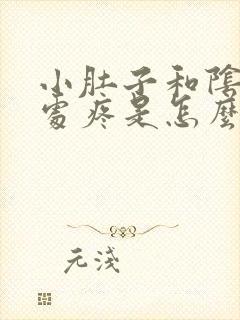 小肚子和陰
處疼是怎麼
元淺